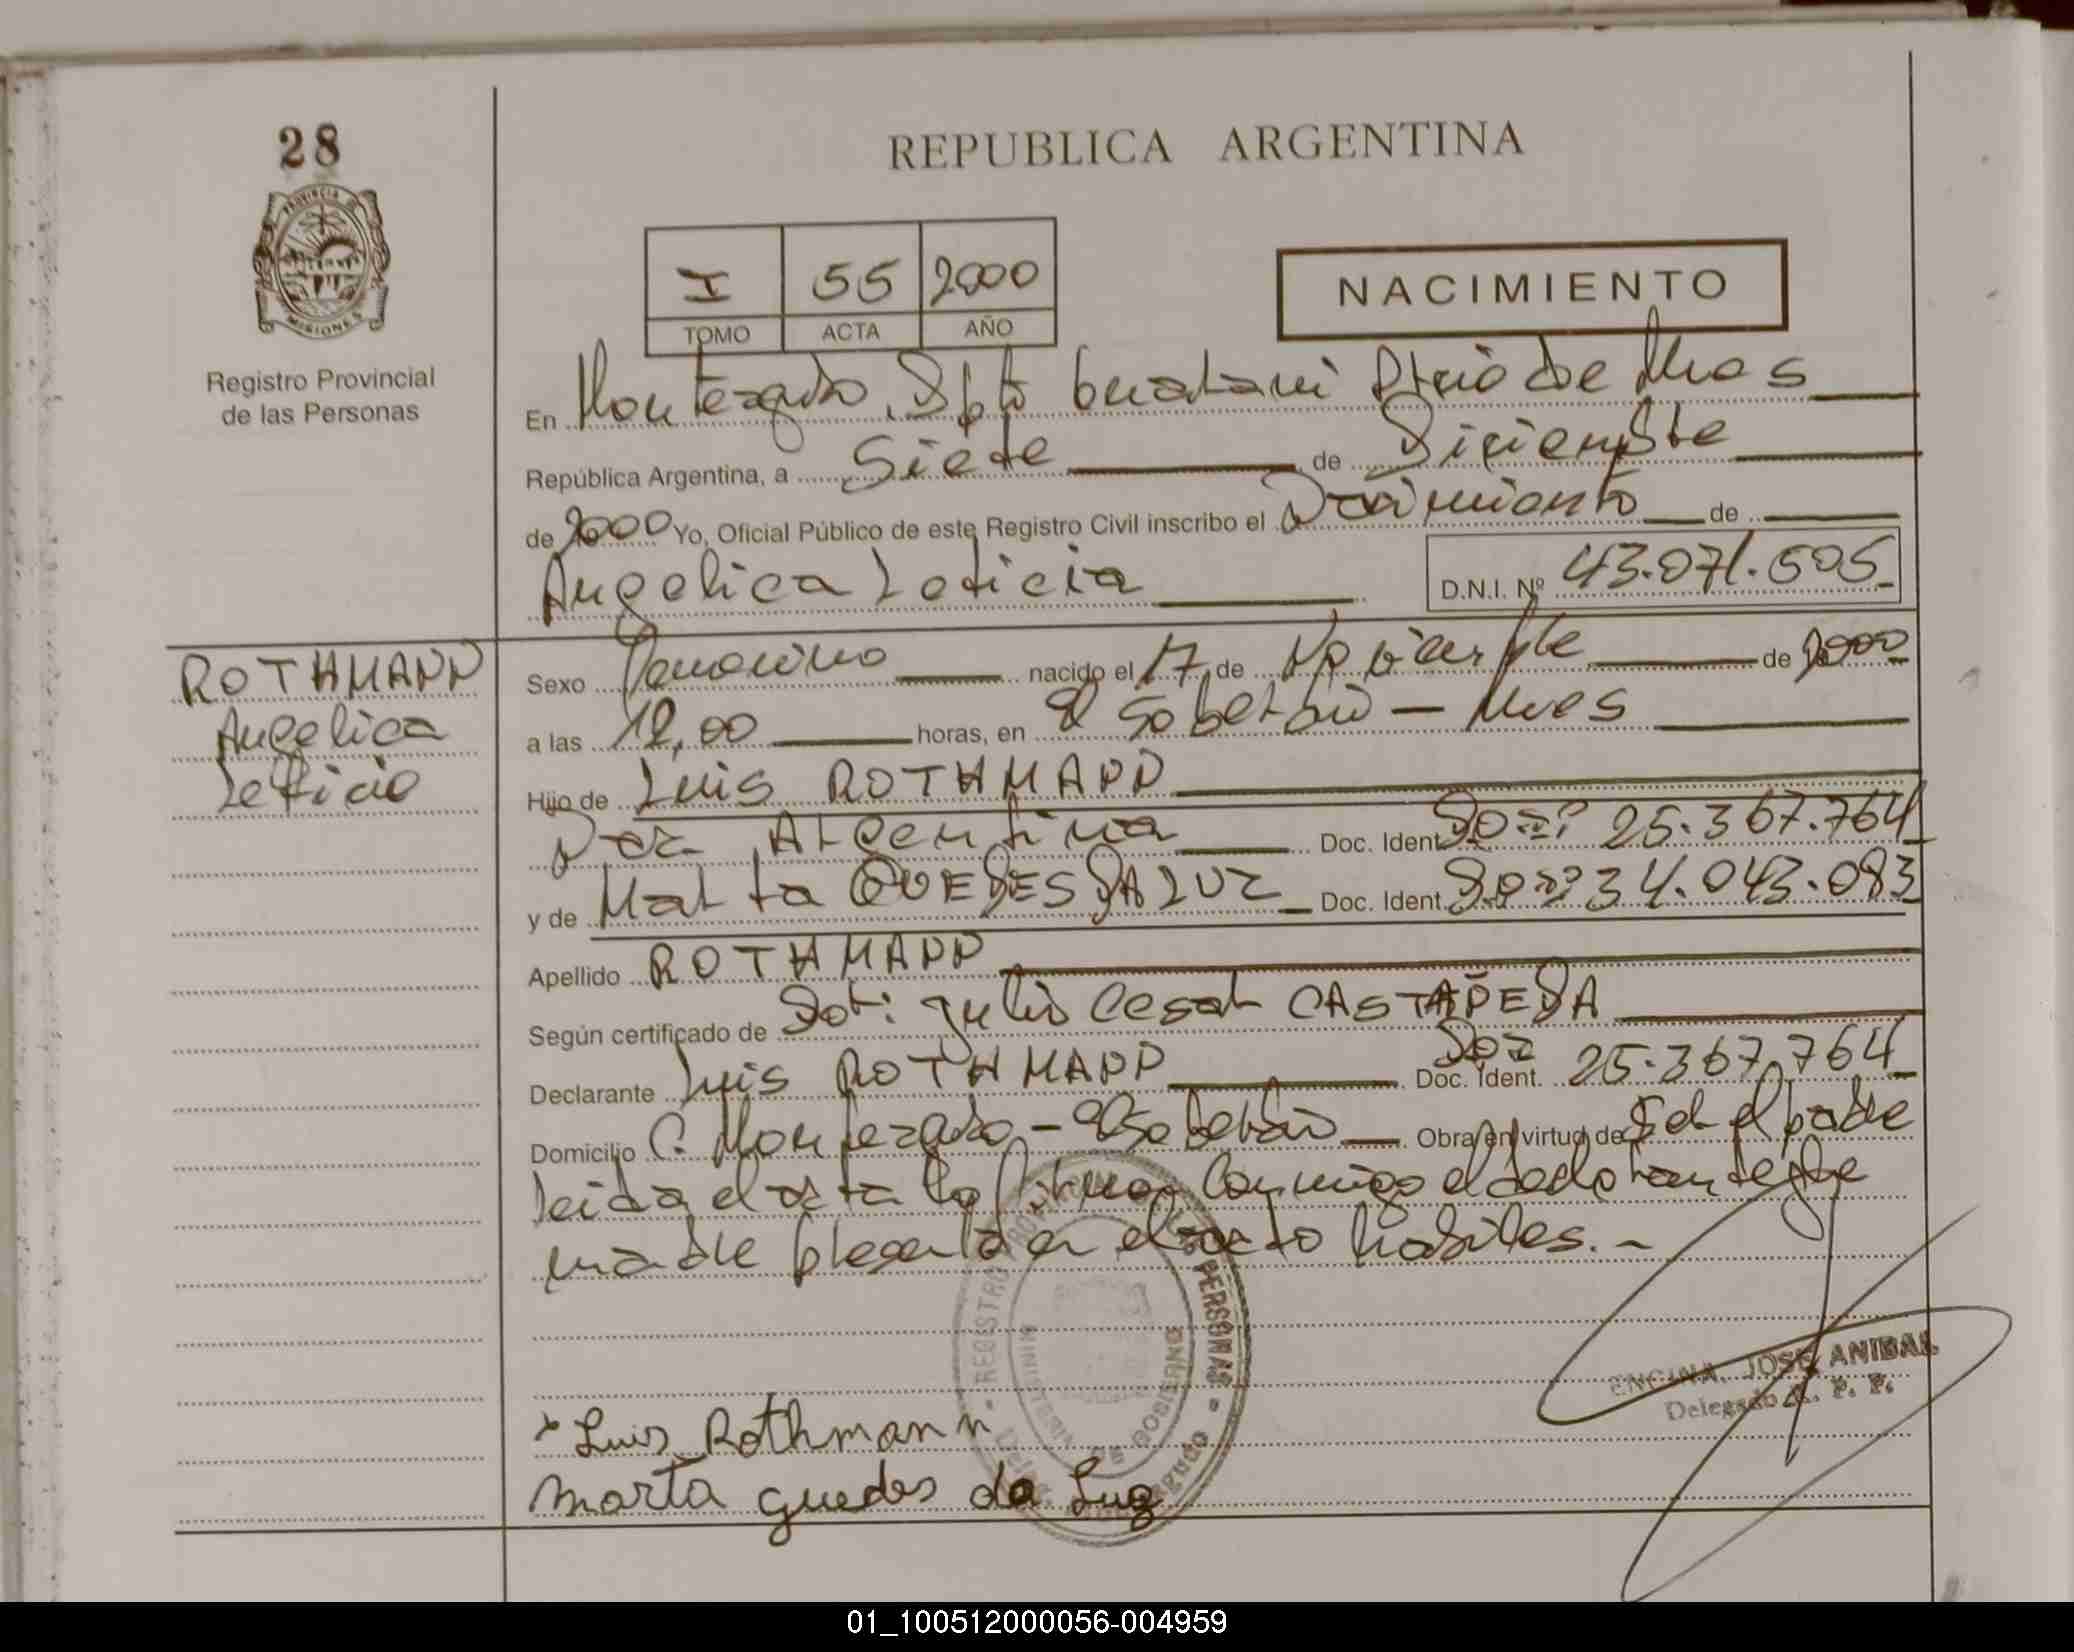 28
REPUBLICA ARGENTINA
PROVINCIA DE
MISIONES
Registro Provincial
de las Personas
I 55 2000
TOMO ACTA AÑO
NACIMIENTO
En Monteagudo, Dpto Guarani Pcia de Mnes
República Argentina, a Siete de Diciembre
de 2000 Yo, Oficial Público de este Registro Civil inscribo el Nacimiento de
Angelica Leticia D.N.I. Nº 43.071.505
ROTHMANN
Angelica
Leticia
Sexo Femenino nacido el 17 de Noviembre de 2000
a las 12,00 horas, en El Soberbio - Mnes
Hijo de Luis ROTHMANN
Nac. Argentina Doc. Ident 25.367.764
y de Marta GUEDES DA LUZ Doc. Ident. 34.043.083
Apellido ROTHMANN
Según certificado de Dor: Julio Cesar CASTAÑEDA
Declarante Luis ROTHMANN Doc. Ident. 25.367.764
Domicilio C. Monteagudo - El Soberbio Obra en virtud de Ser el padre
leida el acta la firman conmigo el declarante y la
madre presente en el acto habiles. -
REGISTRO PERSONAS
MINISTERIO DE GOBIERNO
ENCINA, JOSE ANIBAL
Delegado R. P. P.
x Luis Rothmann
Marta guedes da Luz
01_100512000056-004959